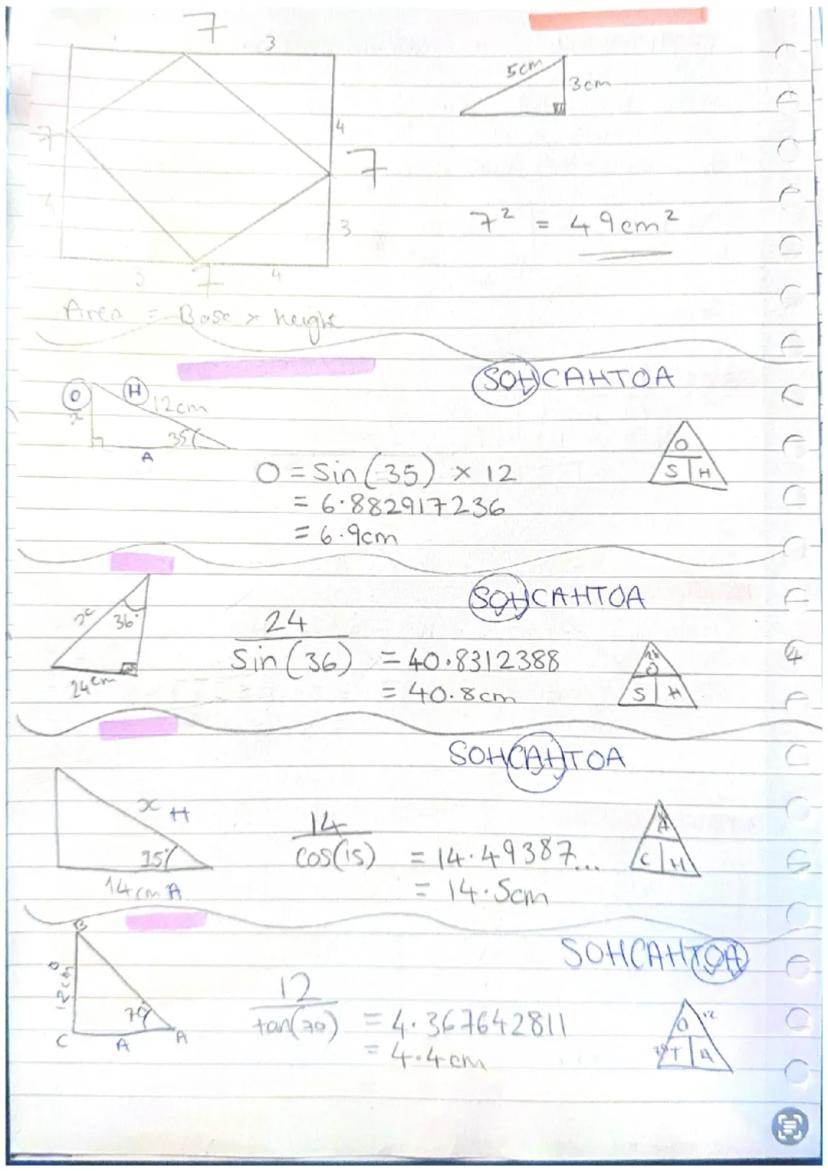 7
3
5cm
3cm
4
7
7
7² = 49cm²
3
3
7
4
Area = Base × height
SOHCAHTOA
O
H
12cm
x
35
A
O
S H
O = Sin(35) × 12
= 6.882917236
= 6.9cm
SOHCAHTOA
x
36°
24cm
24
Sin(36) = 40.8312388
= 40.8cm
O
S H
SOHCAHTOA
x H
15
14cm A
14
cos(15) = 14.49387...
= 14.5cm
A
C H
SOHCAHTOA
B
O
12cm
70
C A A
12
tan(70) = 4.367642811
= 4.4cm
O 12
70 T A